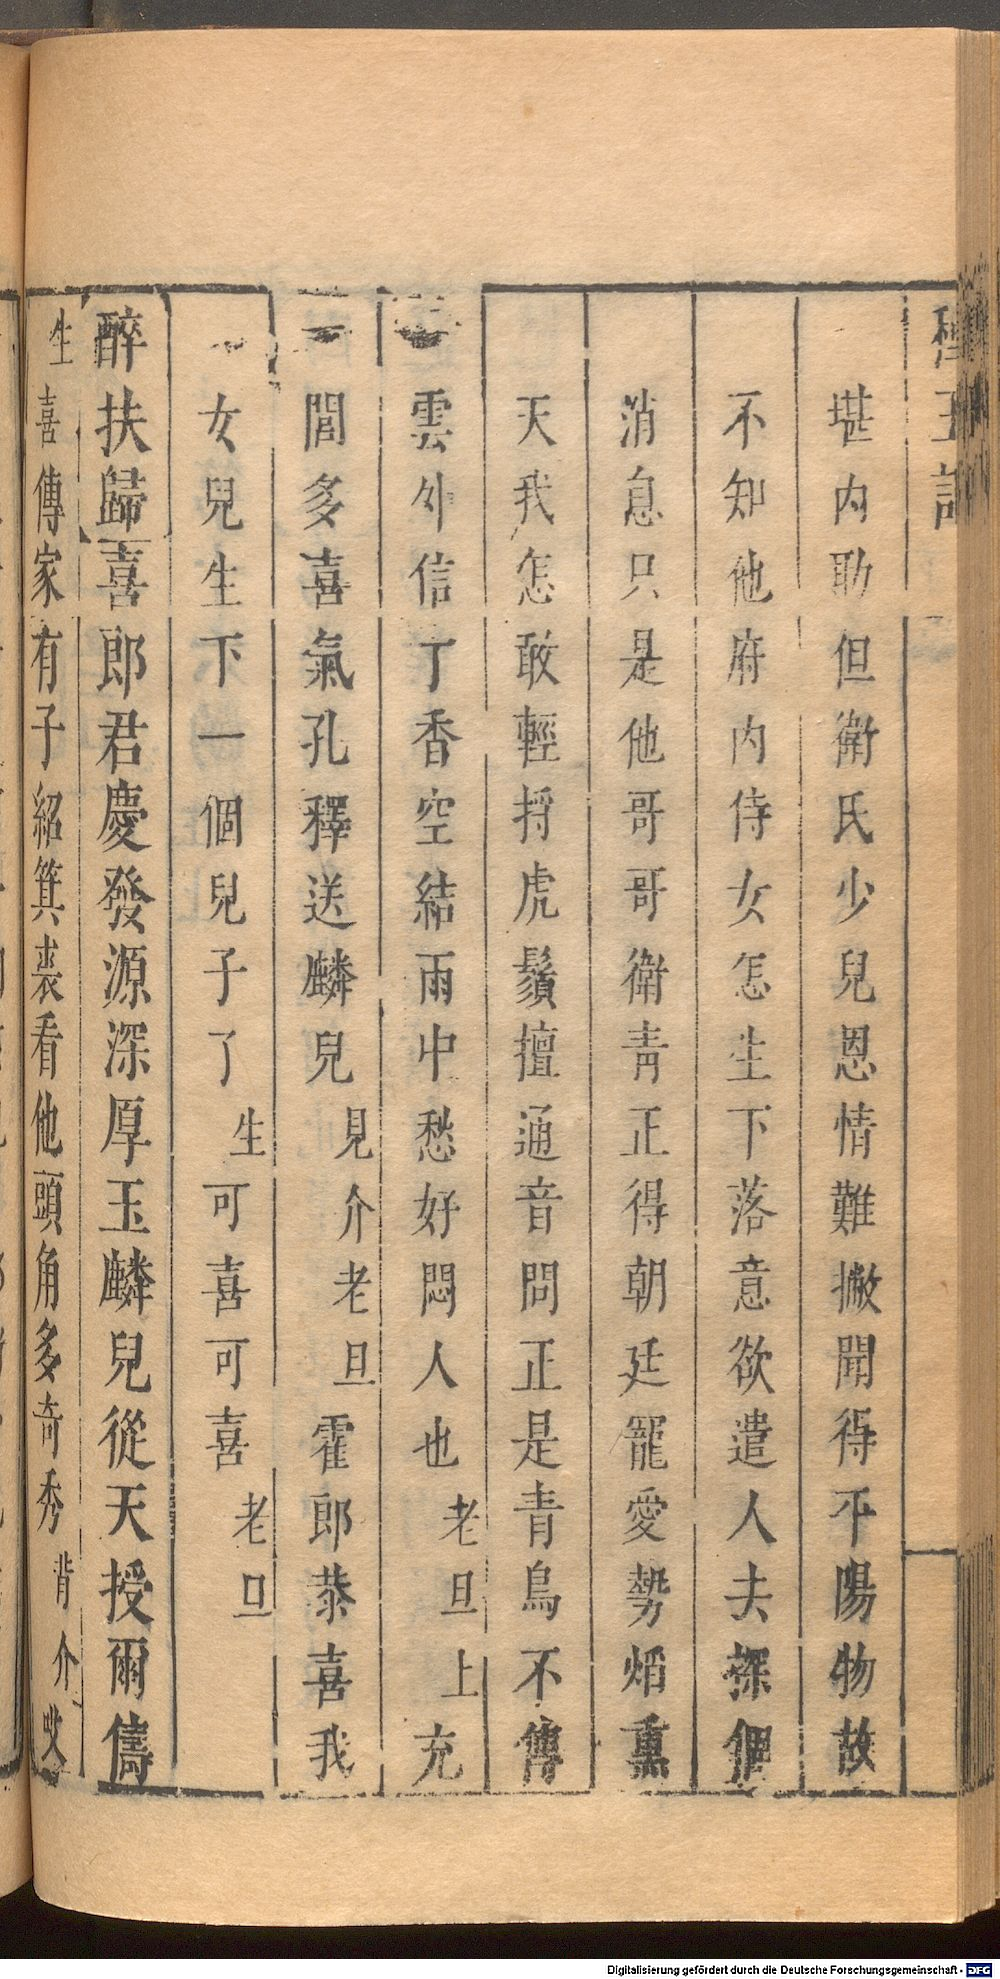 種玉記
堪內助但衛氏少兒恩情難撇聞得平陽物故
不知他府內侍女怎生下落意欲遣人去探個
消息只是他哥哥衛青正得朝廷寵愛勢焰熏
天我怎敢輕捋虎鬚擅通音問正是青鳥不傳
雲外信丁香空結雨中愁好悶人也老旦上充
閭多喜氣孔釋送麟兒見介老旦霍郎恭喜我
女兒生下一個兒子了生可喜可喜老旦
醉扶歸喜郎君慶發源深厚玉麟兒從天授爾儔
生喜傳家有子紹箕裘看他頭角多奇秀背介哎
Digitalisierung gefördert durch die Deutsche Forschungsgemeinschaft - DFG